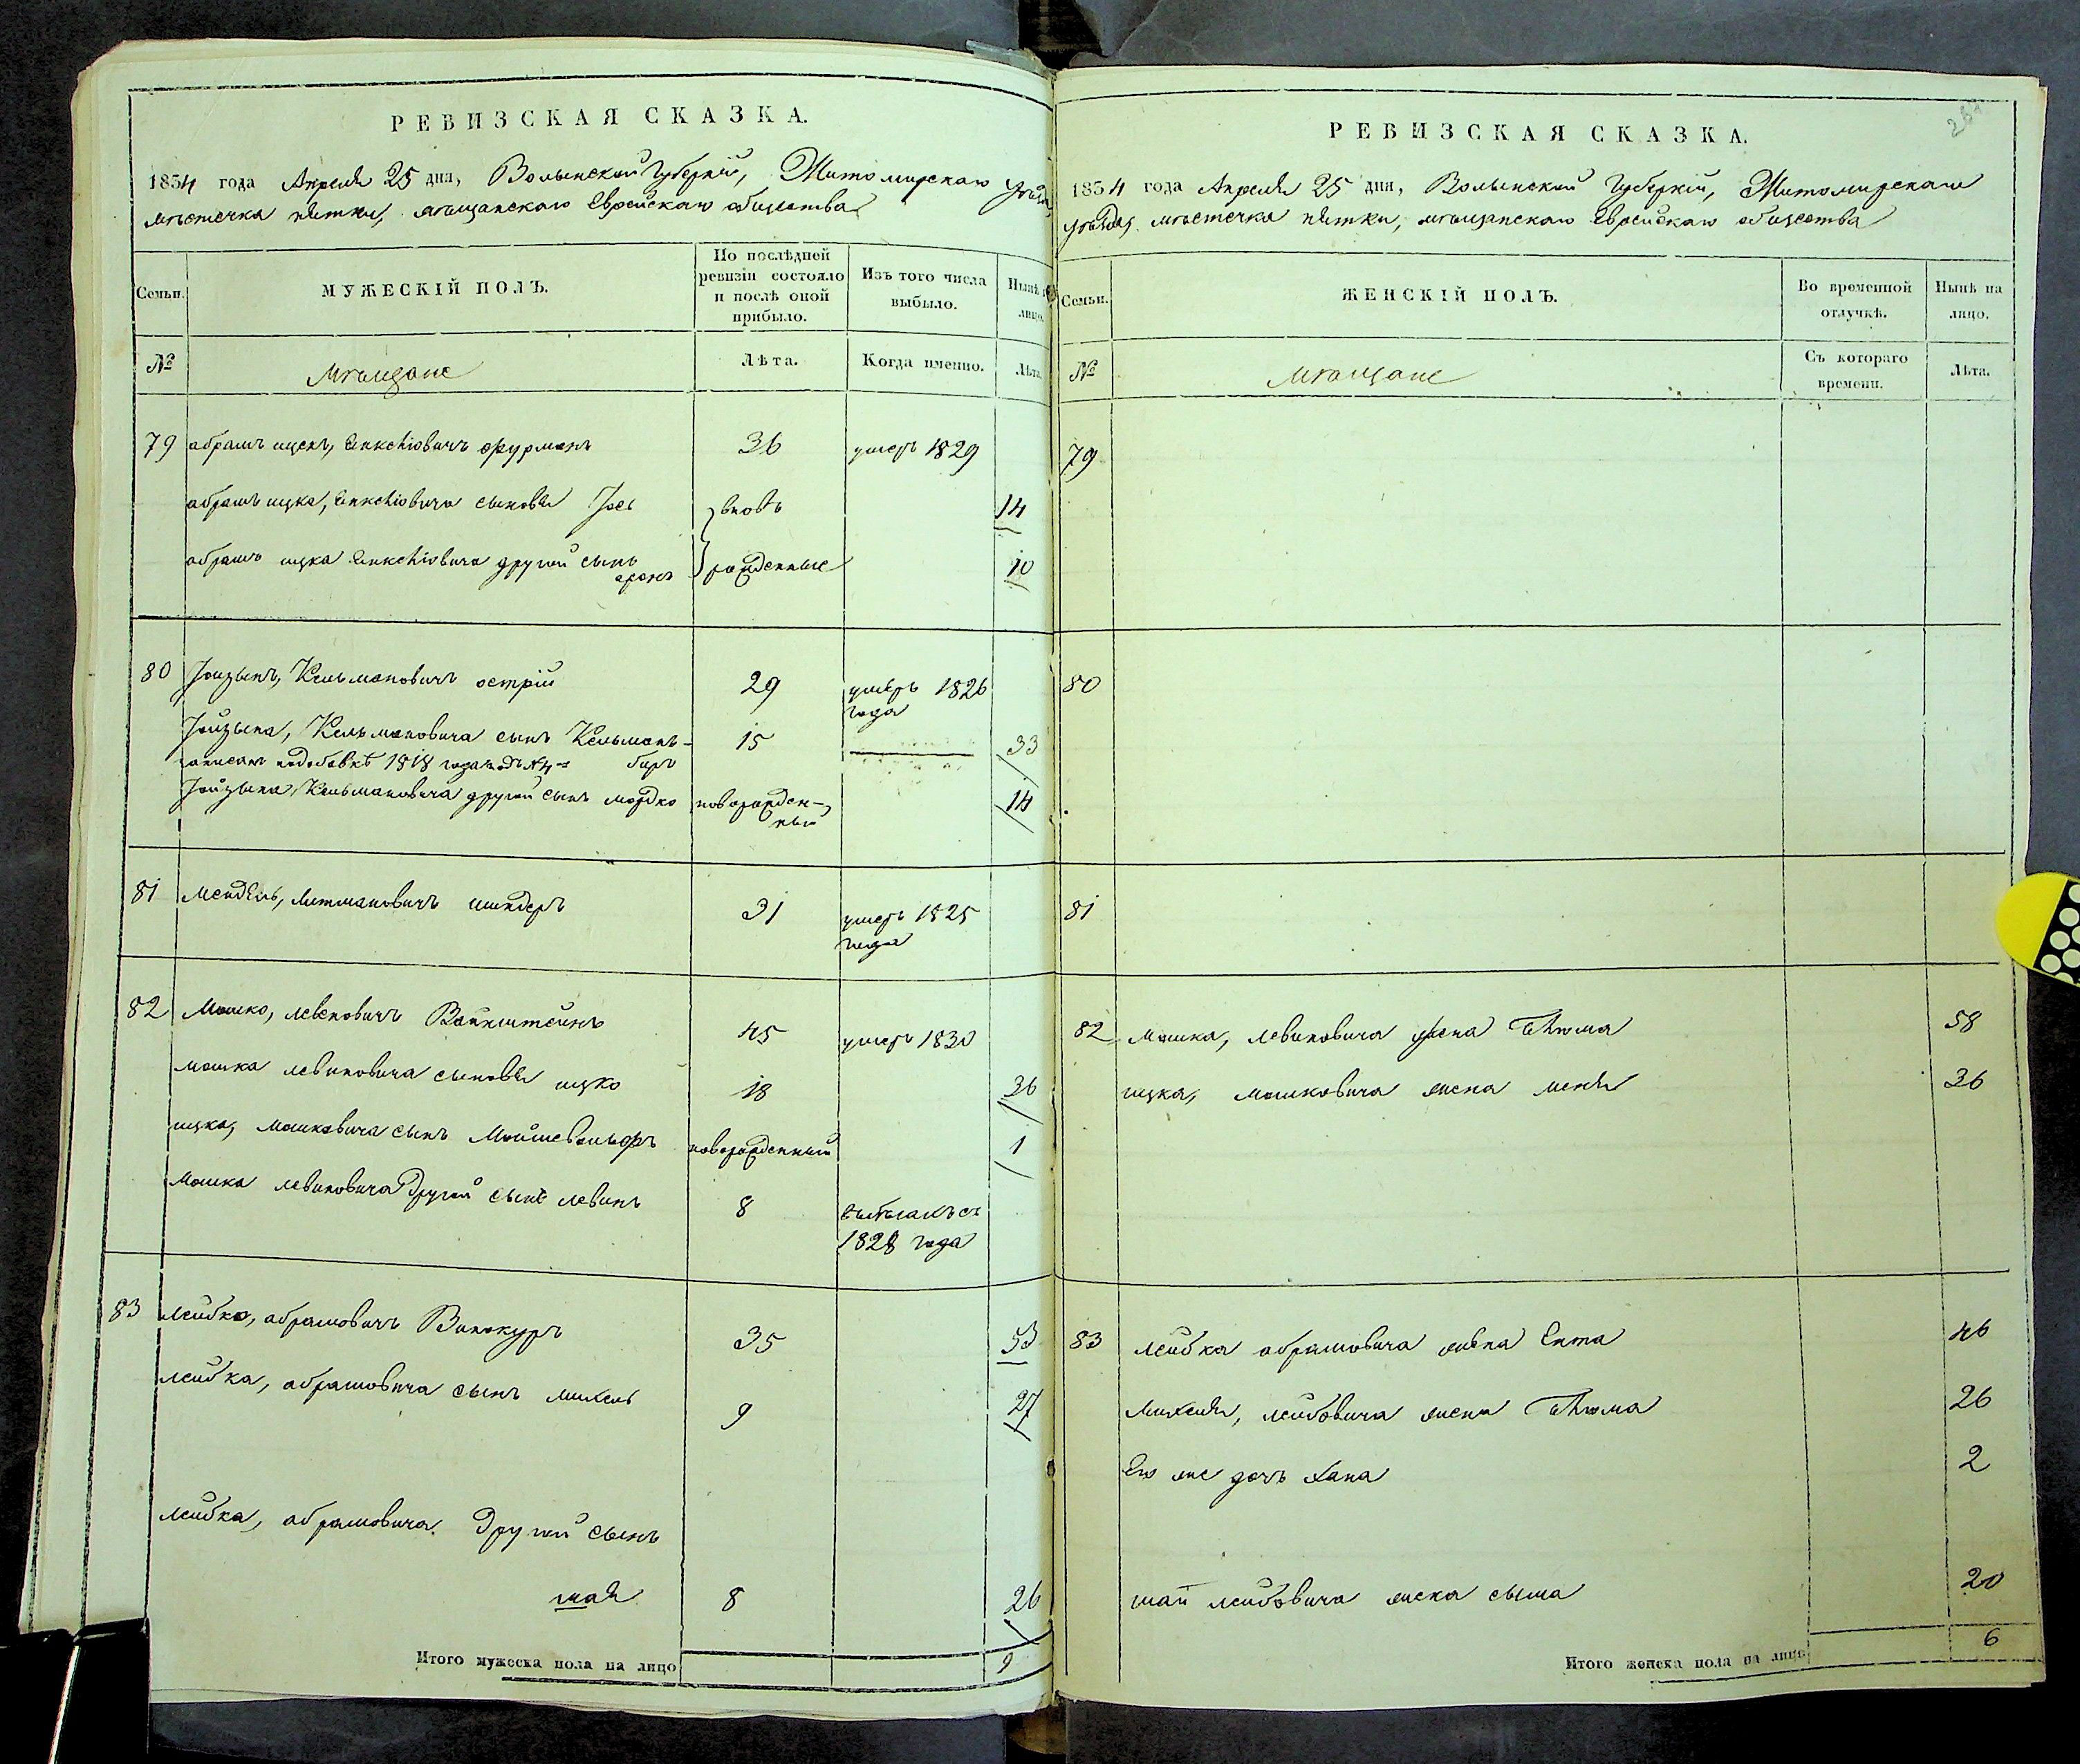 РЕВИЗСКАЯ СКАЗКА.
1834 года Апреля 25 дня, Волынской Губерніи, Житомирскаго уѣзда
мѣстечка пятки, мѣщанскаго Еврейскаго общества
Семьи.
МУЖЕСКІЙ ПОЛЪ.
По послѣдней ревизіи состояло и послѣ оной прибыло.
Изъ того числа выбыло.
Нынѣ на лицо.
№
мѣщане
Лѣта.
Когда именно.
Лѣта.
79 абрамъ ицекъ, фурманъ 36 умеръ 1829
абрамъ ицка, сыновья Іось вновь 14
абрамъ ицка другой сынъ аронъ рожденные 10
80 Кельмановичъ острій 29 умеръ 1826 года
Кельмановича сынъ Кельманъ- 15 33
записанъ 1818 года подъ №4=
Кельмановича другой сынъ мордко новорожден-ный 14
81 мендель, литмановичъ 31 умеръ 1825 года
82 Мошко, левиковичъ Ванштейнъ 45 умеръ 1830
мошка левиковича сыновья ицко 18 36
ицка, мошковича сынъ Мойше новорожденный 1
мошка левиковича другой сынъ левикъ 8 1828 года
83 лейбко, абрамовичъ Винокуръ 35 53
лейбка, абрамовича сынъ михель 9 27
лейбка, абрамовича другой сынъ
шая 8 26
Итого мужеска пола на лицо 9
РЕВИЗСКАЯ СКАЗКА.
1834 года Апреля 25 дня, Волынской Губерніи, Житомирскаго
уѣзда, мѣстечка пятки, мѣщанскаго Еврейскаго общества
Семьи.
ЖЕНСКІЙ ПОЛЪ.
Во временной отлучкѣ.
Нынѣ на лицо.
№
мѣщане
Съ котораго времени.
Лѣта.
79
80
81
82 мошка, левиковича жена 58
ицка, мошковича жена 36
83 лейбка абрамовича жена Ента 46
михеля, лейбовича жена 26
Его же дочь хана 2
шаи лейбовича жена сыма 20
Итого женска пола на лицо 6